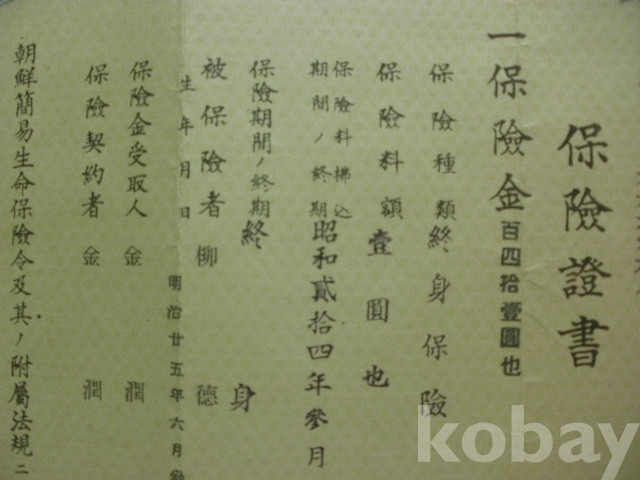 保險證書
一保險金百四拾壹圓也
保險種類 終身保險
保險料額 壹圓也
保險料拂込
期間ノ終期 昭和貳拾四年參月
保險期間ノ終期 終身
被保險者 柳 德
生年月日 明治廿五年六月
保險金受取人 金 潤
保險契約者 金 潤
朝鮮簡易生命保險令及其ノ附屬法規ニ
kobay